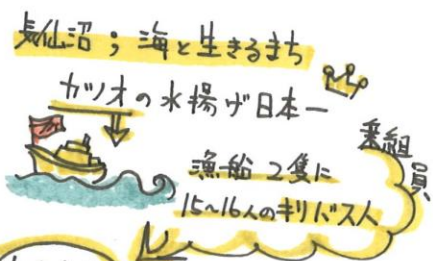 気仙沼；海と生きるまち
カツオの水揚げ日本一
漁船2隻に
15〜16人のキリバス人
乗組員